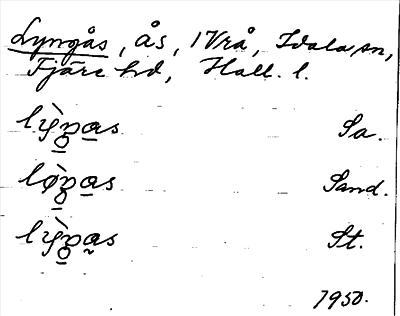 Lyngås, ås, 1 Vrå, Idala sn,
Fjäre hd, Hall. l.
lỳŋo̱a̱s Sa.
lø̀ŋo̱a̱s Sand.
lỳŋo̱a̰s St.
1950.